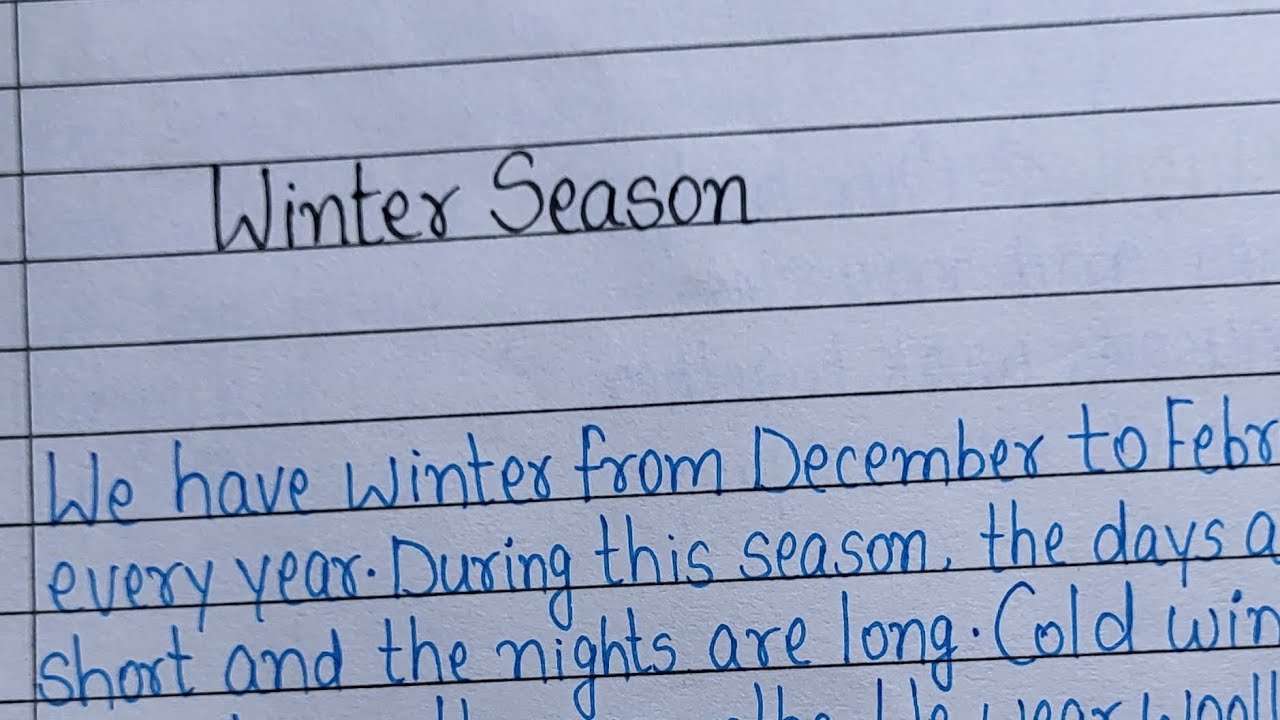 Winter Season
We have Winter from December to Febr
every year. During this season, the days a
short and the nights are long. Cold win